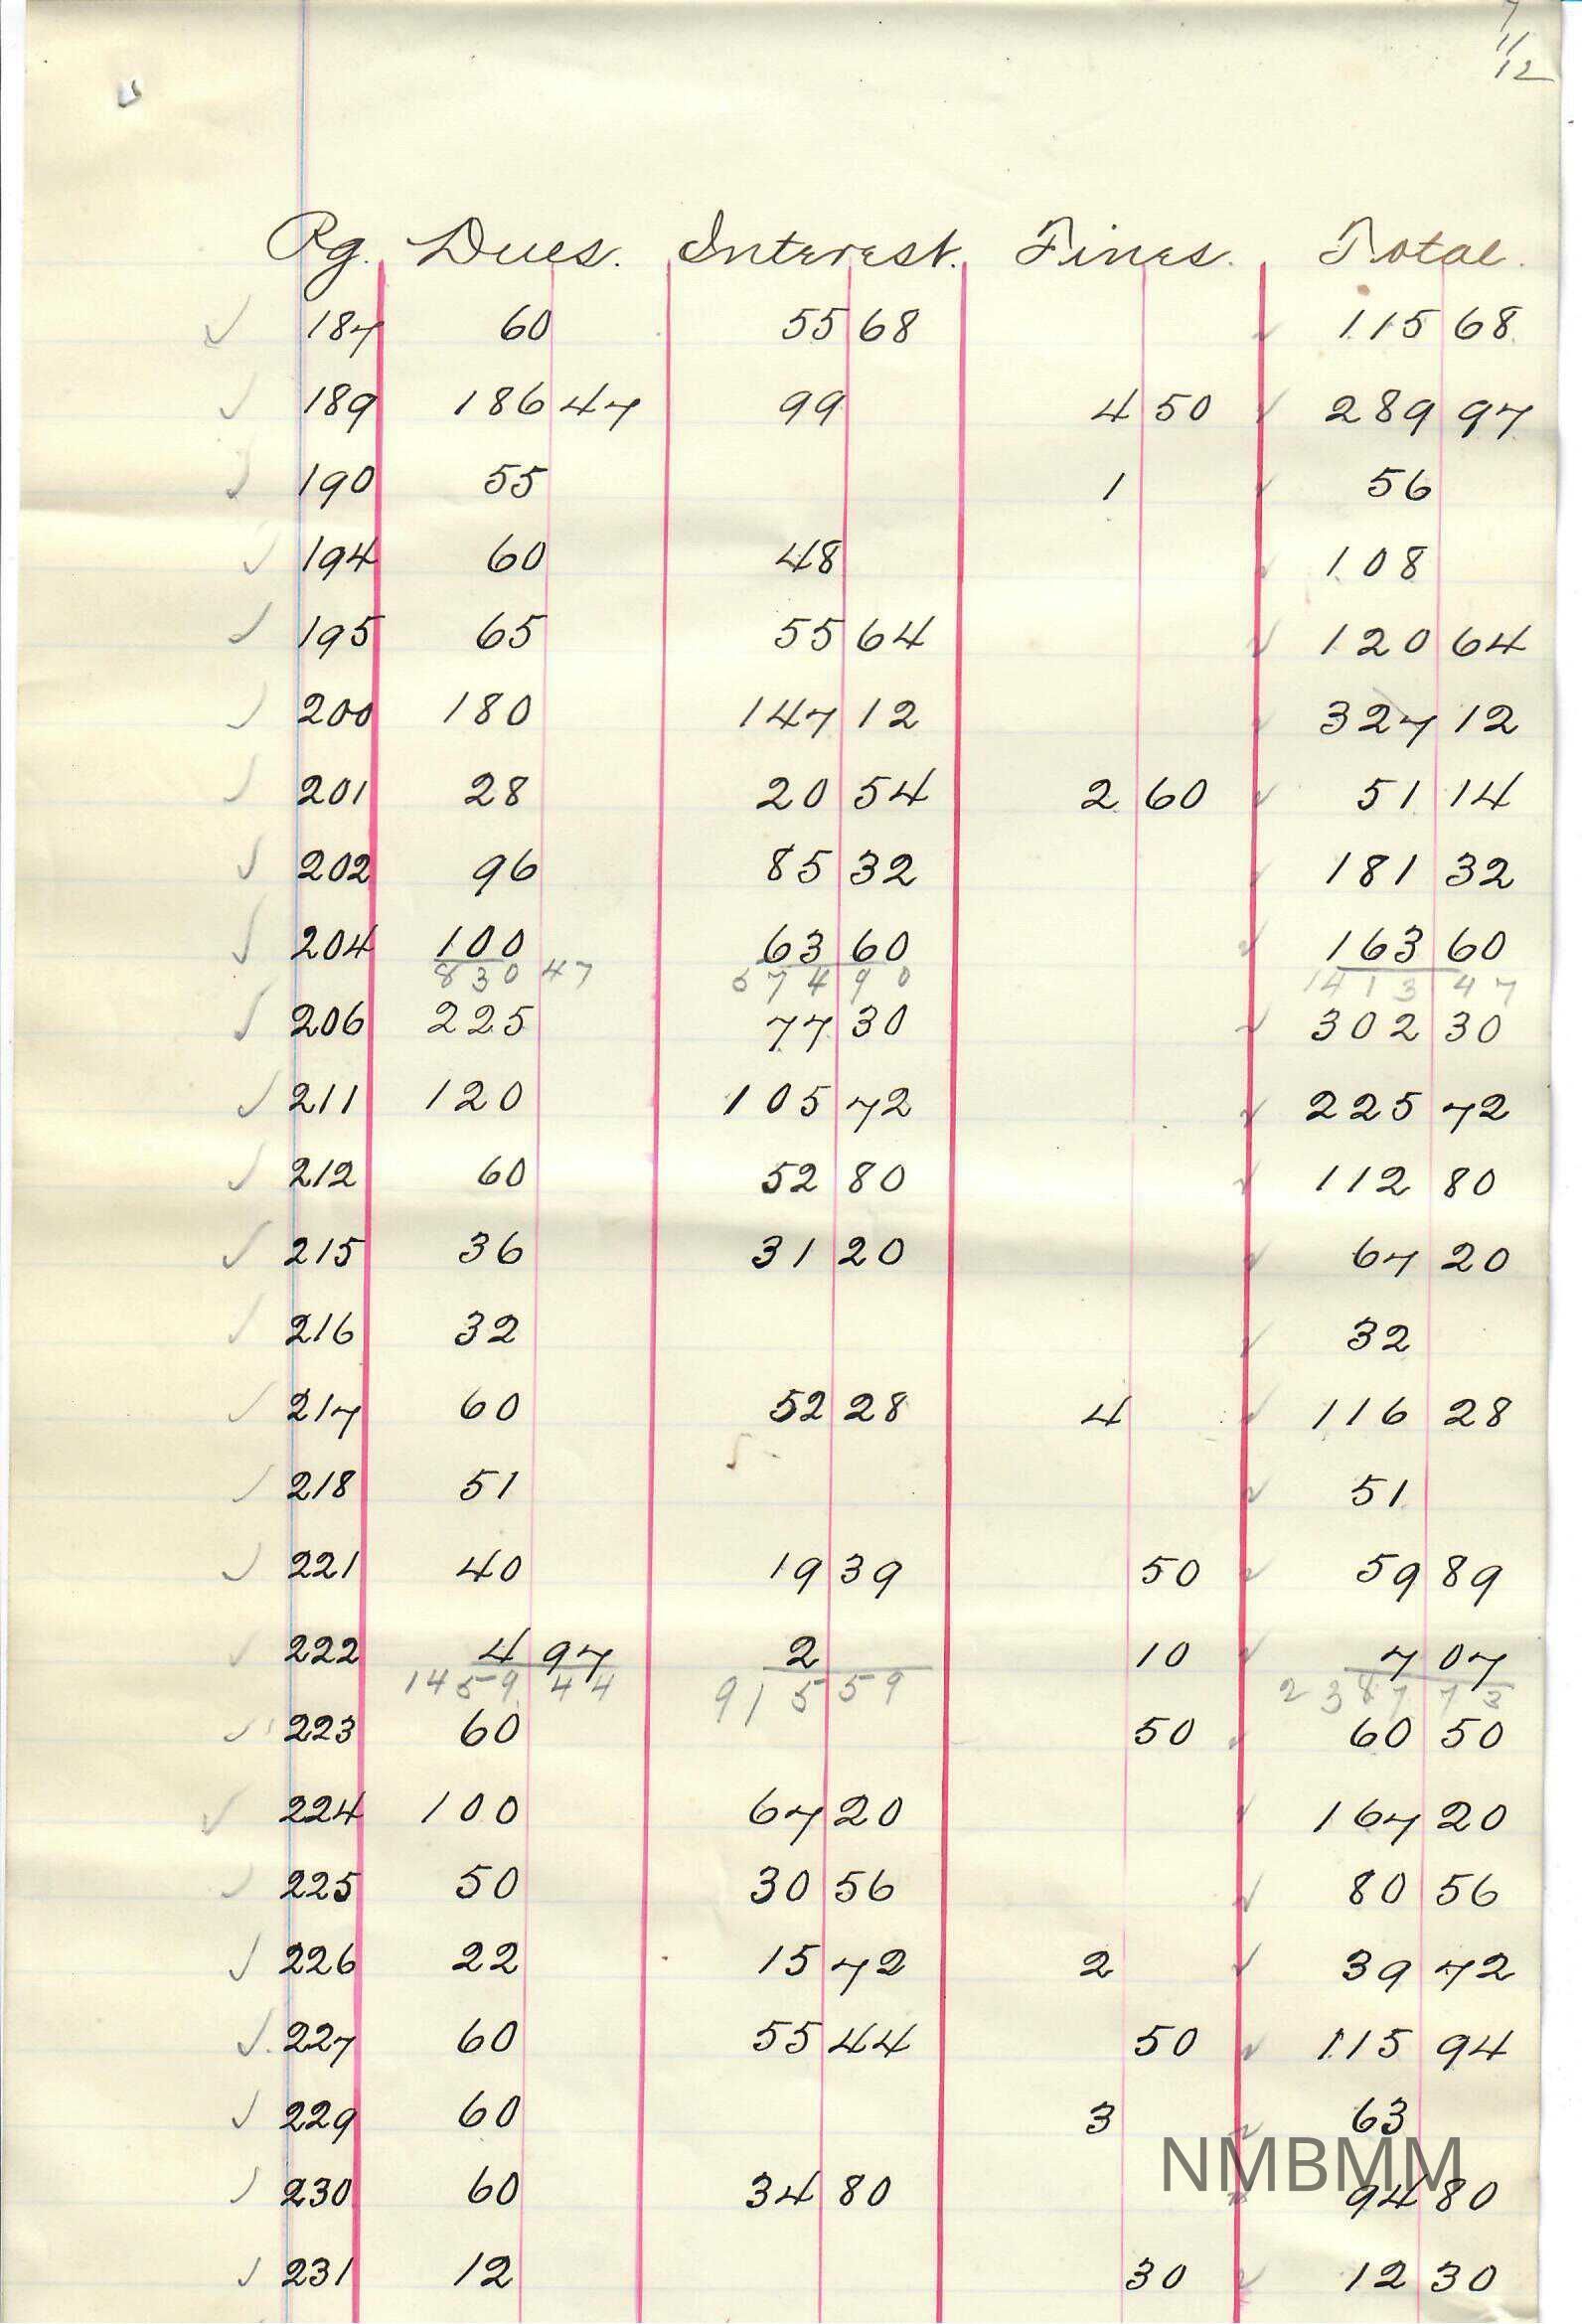 7
11
12
Pg. Dues. Interest. Fines. Total.
187 60 55 68 115 68
189 186 47 99 4 50 289 97
190 55 1 56
194 60 48 108
195 65 55 64 120 64
200 180 147 12 327 12
201 28 20 54 2 60 51 14
202 96 85 32 181 32
204 100 63 60 163 60
830 47 574 90 1413 47
206 225 77 30 302 30
211 120 105 72 225 72
212 60 52 80 112 80
215 36 31 20 67 20
216 32 32
217 60 52 28 4 116 28
218 51 51
221 40 19 39 50 59 89
222 4 97 2 10 7 07
1459 44 915 59 2387 73
223 60 50 60 50
224 100 67 20 167 20
225 50 30 56 80 56
226 22 15 72 2 39 72
227 60 55 44 50 115 94
229 60 3 63
NMBMM
230 60 34 80 94 80
231 12 30 12 30